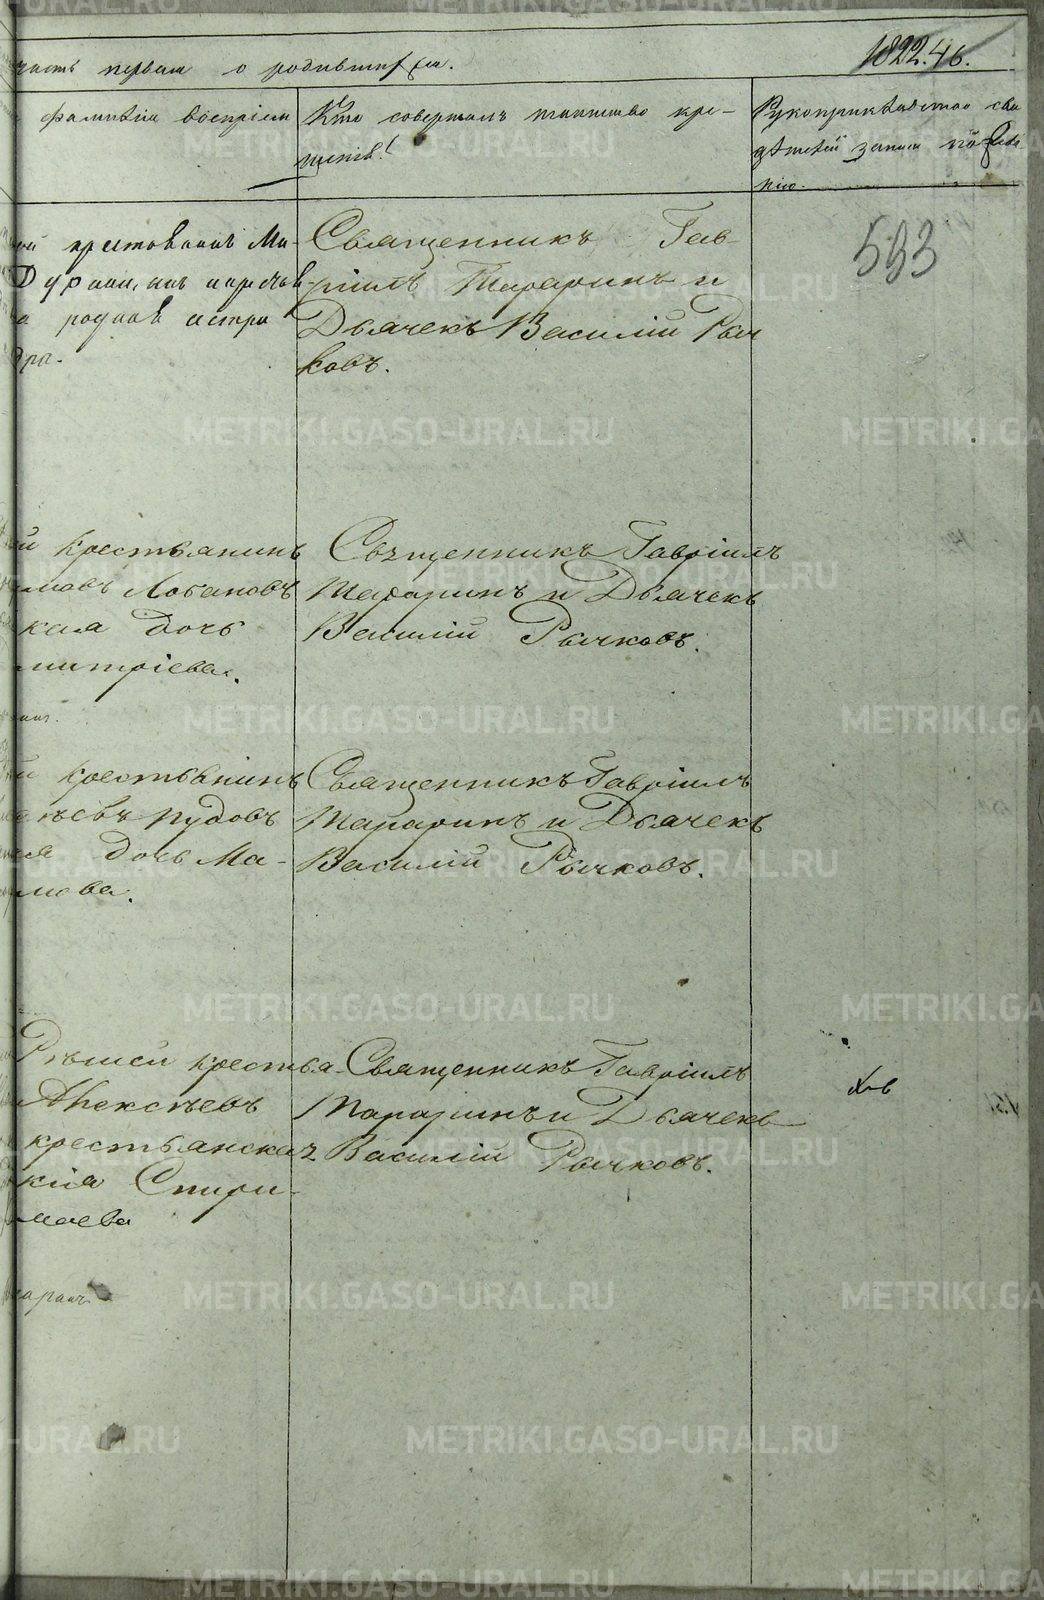 часть первая о родившихся.
1822. 46.
фамилія воспріем
Кто совершалъ таинство кре-
щенія!
Рукоприкладство сви
дѣтелей записи по
нію.
533
крестьянинъ Ми-
родная сестра
Священникъ Гав-
ріилъ Тараринъ и
Дьячекъ Василій Рыч
ковъ.
й крестьянинъ
мовъ Лобановъ
кая дочь
митріева.
Священникъ Гавріилъ
Тараринъ и Дьячекъ
Василій Рычковъ.
й крестьянинъ
ѣевъ Пудовъ
ая дочь Ма-
мова.
Священникъ Гавріилъ
Тараринъ и Дьячекъ
Василій Рычковъ.
крестья-
Алексѣевъ
крестьянская
кия Спири-
Священникъ Гавріилъ
Тараринъ и Дьячекъ
Василій Рычковъ.
METRIKI.GASO-URAL.RU